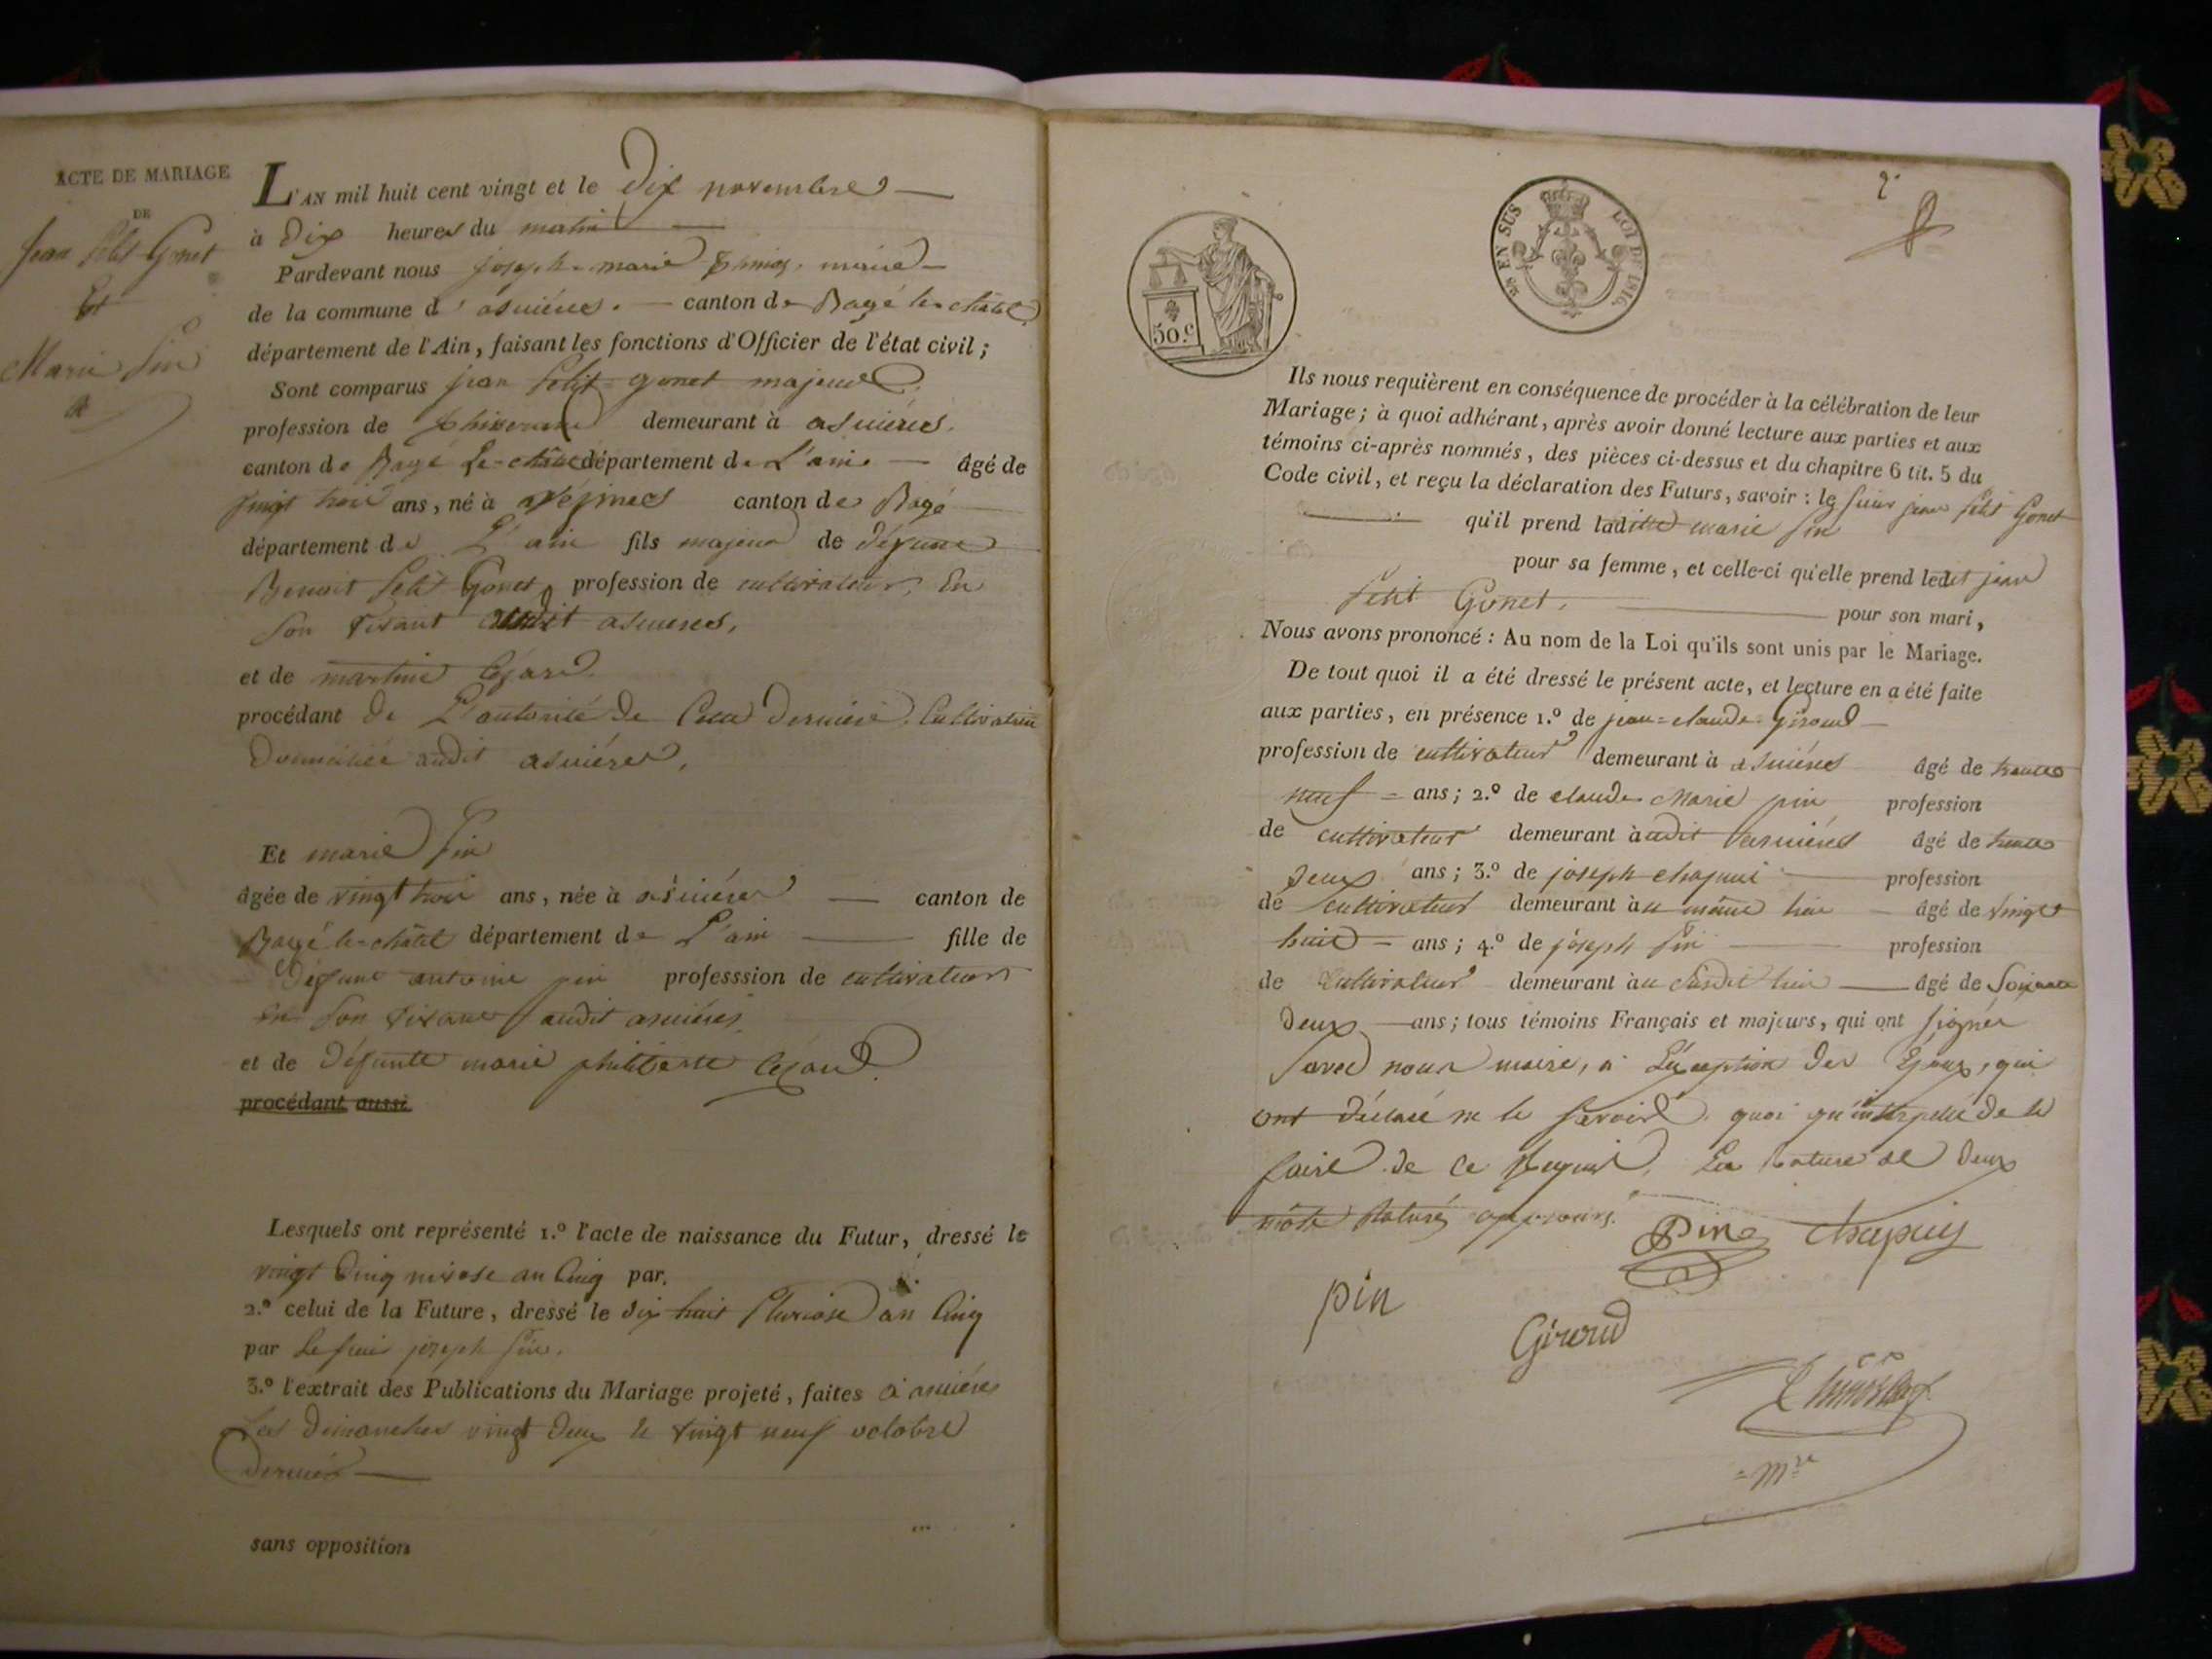 ACTE DE MARIAGE
DE
Jean Petit Gonet
Et
Marie Pin
L'AN mil huit cent vingt et le Dix novembre
à Dix heures du matin
Pardevant nous joseph marie maire
de la commune d'asnières. canton de Bagé le châtel
département de l'Ain, faisant les fonctions d'Officier de l'état civil;
Sont comparus jean Petit gonet majeur
profession de demeurant à asnières.
canton de Bagé Le-châtel département de L'ain âgé de
vingt trois ans, né à canton de Bagé
département de L'ain fils majeur de défunt
Benoit Petit Gonet, profession de cultivateur, En
Son vivant audit asnieres,
et de martine
procédant de L'autorité de Cette Derniere. Cultivatrice
Domiciliée audit asnières.
Et marie Pin
âgée de vingt trois ans, née à asnières canton de
Bagé le-châtel département de L'ain fille de
Défunt antoine pin professsion de cultivateur
en Son vivant audit asnières
et de Défunte marie philiberte
procédant aussi
Lesquels ont représenté 1.º l'acte de naissance du Futur, dressé le
vingt Cinq nivose an Cinq par.
2.º celui de la Future, dressé le dix huit Pluviose an Cinq
par Le sieur joseph Pin.
3.º l'extrait des Publications du Mariage projeté, faites à asnières
Les Dimanches vingt Deux & vingt neuf octobre
Dernier
sans opposition
2.e
50.c
EN SUS
LOI DE 1816.
Ils nous requièrent en conséquence de procéder à la célébration de leur
Mariage; à quoi adhérant, après avoir donné lecture aux parties et aux
témoins ci-après nommés, des pièces ci-dessus et du chapitre 6 tit. 5 du
Code civil, et reçu la déclaration des Futurs, savoir: le sieur jean Petit Gonet
qu'il prend laditte marie Pin
pour sa femme, et celle-ci qu'elle prend ledit jean
Petit Gonet, pour son mari,
Nous avons prononcé: Au nom de la Loi qu'ils sont unis par le Mariage.
De tout quoi il a été dressé le présent acte, et lecture en a été faite
aux parties, en présence 1.º de jean-claude Giroud
profession de cultivateur demeurant à asnières âgé de trente
neuf ans; 2.º de claude Marie pin profession
de cultivateur demeurant à udit asnières âgé de trente
Deux ans; 3.º de joseph chapuis profession
de cultivateur demeurant àu même lieu âgé de vingt
huit ans; 4.º de joseph Pin profession
de Cultivateur demeurant àu Susdit lieu âgé de Soixante
Deux ans; tous témoins Français et majeurs, qui ont signés
avec nous maire, à L'éxception des Epoux, qui
ont déclaré ne le savoir quoi qu'interpellé de le
faire de ce requis. La rature de Deux
mots raturés approuvés.
Pin chapuis
pin
Giroud
M.re